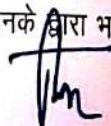 नके द्वारा भ